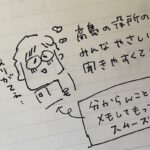 高島の役所の
みんなやさしい
聞きやすくて
分からんこと
メモしてもっ
スムーズ